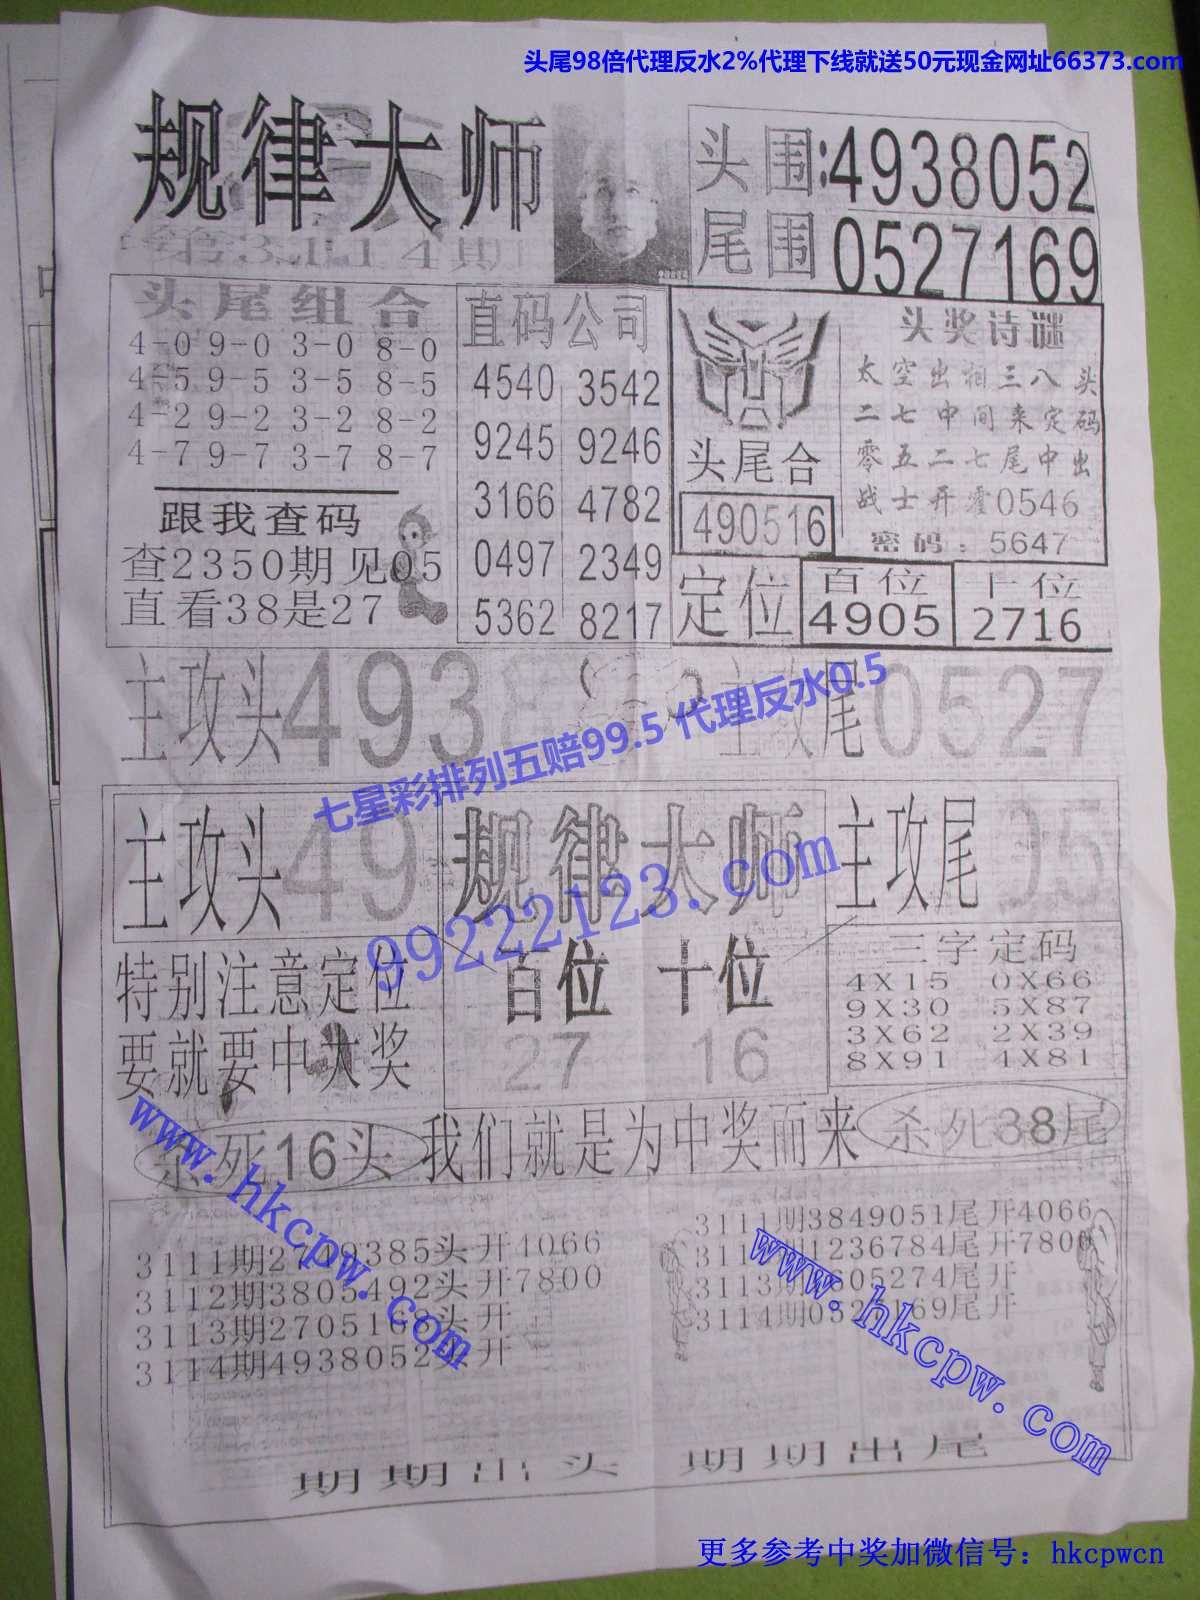 头尾98倍代理反水2%代理下线就送50元现金网址66373.com
规律大师
3114期
头围:4938052
尾围 0527169
头尾组合
4-0 9-0 3-0 8-0
4-5 9-5 3-5 8-5
4-2 9-2 3-2 8-2
4-7 9-7 3-7 8-7
跟我查码
查2350期见05
直看38是27
直码公司
4540 3542
9245 9246
3166 4782
0497 2349
5362 8217
头尾合
490516
头奖诗谜
太空出祠三八头
二七中间来定码
零五二七尾中出
战士开霍0546
密码:5647
定位
百位
4905
十位
2716
主攻头4938
主攻尾0527
七星彩排列五赔99.5 代理反水0.5
主攻头49
规律大师
主攻尾05
99222123.com
特别注意定位
要就要中大奖
百位 十位
27 16
三字定码
4X15 0X66
9X30 5X87
3X62 2X39
8X91 4X81
杀死16头
我们就是为中奖而来
杀死38尾
3111期2749385头开4066
3112期3805492头开7800
3113期2705168头开
3114期4938052头开
3111期3849051尾开4066
1236784尾开7800
3113期 605274尾开
3114期0527169尾开
期期出头 期期出尾
www.hkcpw.com
www.hkcpw.com
更多参考中奖加微信号：hkcpwcn